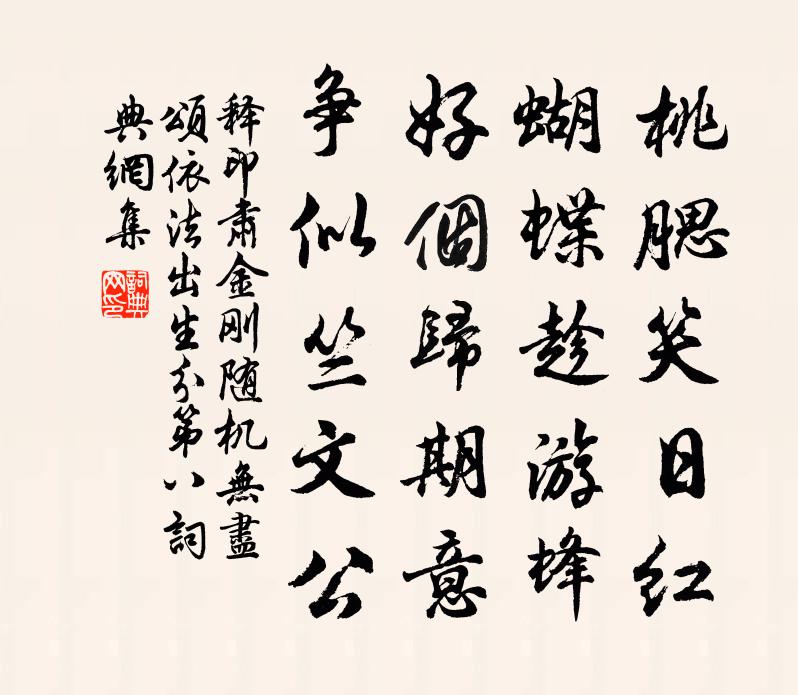 桃腮笑日红
蝴蝶趁游蜂
好個歸期意
争似竺文公
释印肃金刚随机無盡
頌依法出生分第八詞
典網集
詞典網印